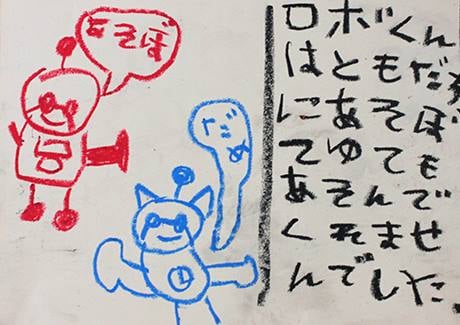 あそぼ
だめ
ロボくん
はともだち
にあそぼ
てゆても
あそんで
くれませ
んでした